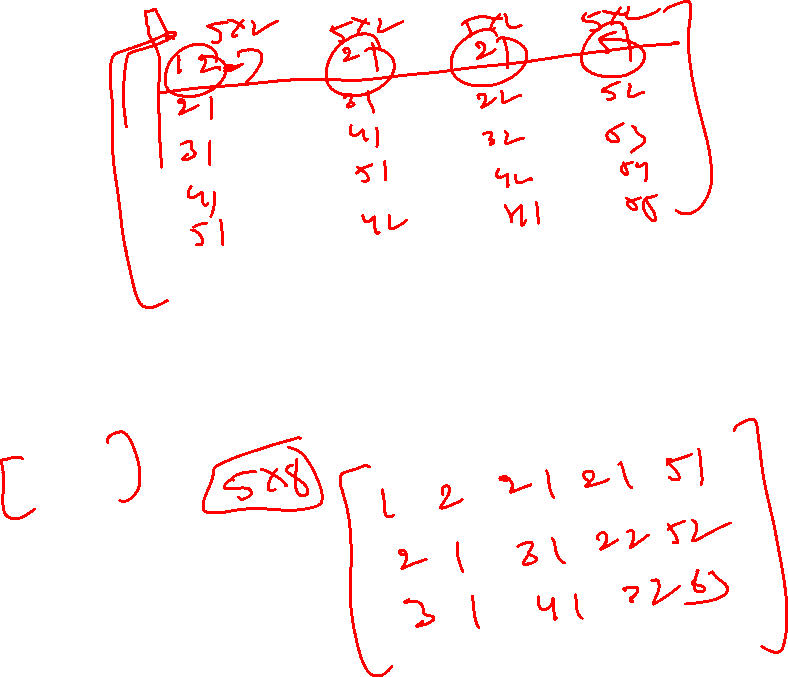 5x2 5x2 5x2 5x2
1 2 2 1 2 1 5 1
2 1 3 1 2 2 5 2
3 1 4 1 3 2 5 3
4 1 5 1 4 2 5 4
5 1 4 2 4 1 5 5
[ ] 5x8
1 2 2 1 2 1 5 1
2 1 3 1 2 2 5 2
3 1 4 1 3 2 5 3